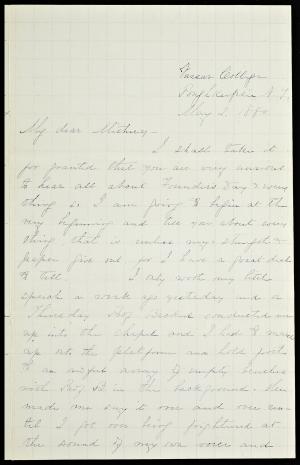 Vassar College
Poughkeepsie N.Y.
May 2. 188
My dear Mother,
I shall take it
for granted that you are very anxious
to hear all about Founder's Day & every
thing so I am going to begin at the
very beginning and tell you about every
thing that is unless my strength &
paper give out for I have a great deal
to tell. I only wrote my little
speech a week ago yesterday and on
Thursday Prof. Backus conducted me
up into the chapel and I had to march
up onto the platform and hold forth
to an awful array of empty benches
with Prof. B. in the background. He
made me say it over and over un-
til I got over being frightened at
the sound of my own voice and